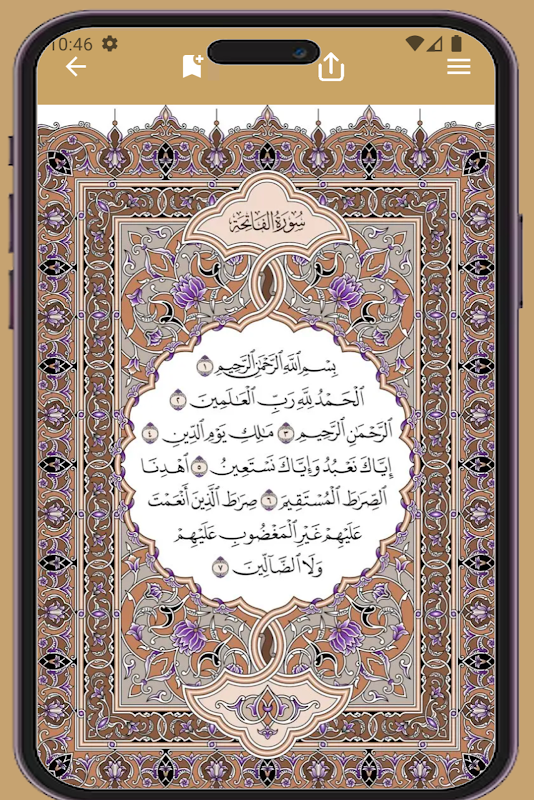 10:46
سُورَةُ الفَاتِحَة
بِسْمِ ٱللَّهِ ٱلرَّحْمَٰنِ ٱلرَّحِيمِ ١
ٱلْحَمْدُ لِلَّهِ رَبِّ ٱلْعَٰلَمِينَ ٢
ٱلرَّحْمَٰنِ ٱلرَّحِيمِ ٣ مَٰلِكِ يَوْمِ ٱلدِّينِ ٤
إِيَّاكَ نَعْبُدُ وَإِيَّاكَ نَسْتَعِينُ ٥ ٱهْدِنَا
ٱلصِّرَٰطَ ٱلْمُسْتَقِيمَ ٦ صِرَٰطَ ٱلَّذِينَ أَنْعَمْتَ
عَلَيْهِمْ غَيْرِ ٱلْمَغْضُوبِ عَلَيْهِمْ
وَلَا ٱلضَّآلِّينَ ٧